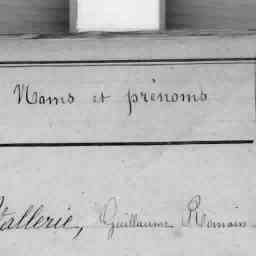 Noms et prénoms
Vallerie, Guillaume Romain